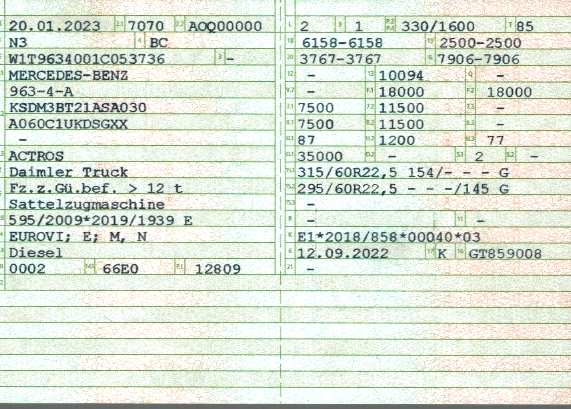 20.01.2023 7070 AOQ00000
N3 BC
W1T9634001C053736 -
MERCEDES-BENZ
963-4-A
KSDM3BT21ASA030
A060C1UKDSGXX
-
ACTROS
Daimler Truck
Fz.z.Gü.bef. > 12 t
Sattelzugmaschine
595/2009*2019/1939 E
EUROVI; E; M, N
Diesel
0002 66E0 12809
2 1 330/1600 85
6158-6158 2500-2500
3767-3767 7906-7906
- 10094 -
- 18000 18000
7500 11500 -
7500 11500 -
87 1200 77
35000 - 2 -
315/60R22,5 154/- - - G
295/60R22,5 - - -/145 G
-
- -
E1*2018/858*00040*03
12.09.2022 K GT859008
-